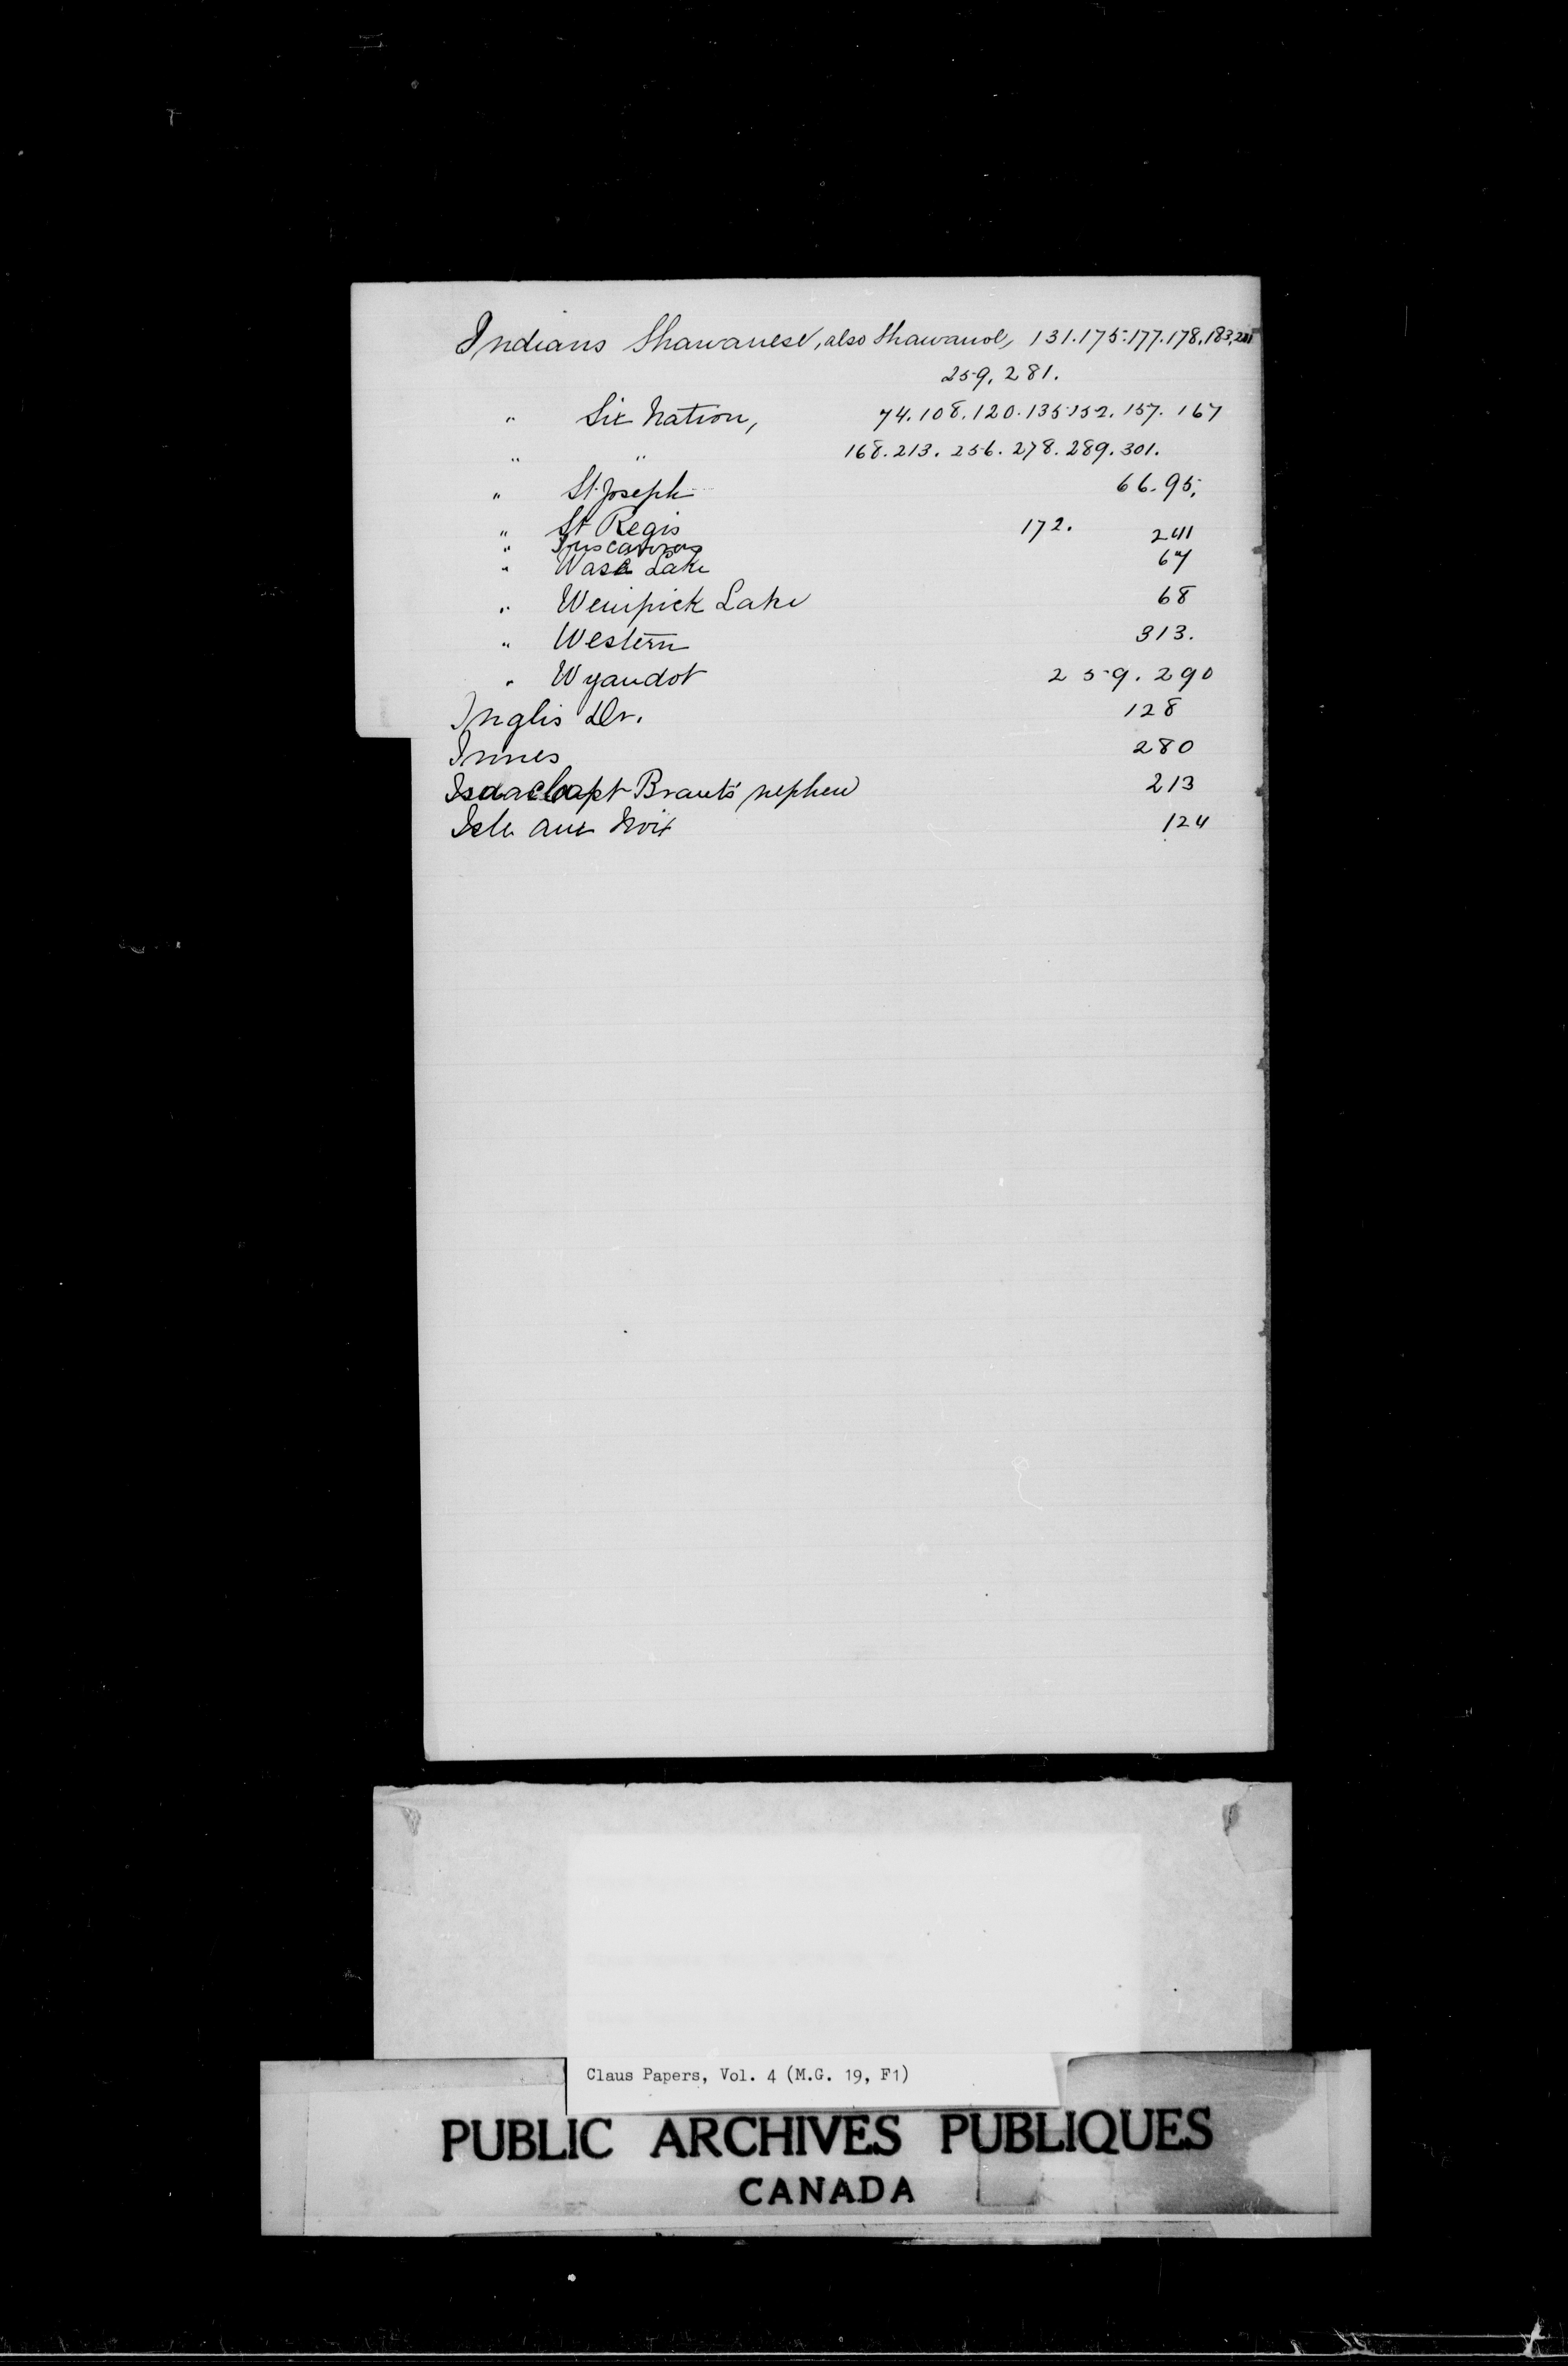 Indians Shawanese, also Shawanoe, 131.175.177.178.183.211
259. 281.
" Six Nation, 74.108.120.135.152.157. 167
" " 168.213. 256. 278. 289. 301.
" St Joseph 66.95.
" St Regis 172.
" Tuscaroras 241
" Wasa Lake 67
" Wenipick Lake 68
" Western 313.
" Wyandot 259. 290
Inglis Dr. 128
Innes 280
Isaac Capt Brant's nephew 213
Isle aux Noix 124
Claus Papers, Vol. 4 (M.G. 19, F1)
PUBLIC ARCHIVES PUBLIQUES
CANADA